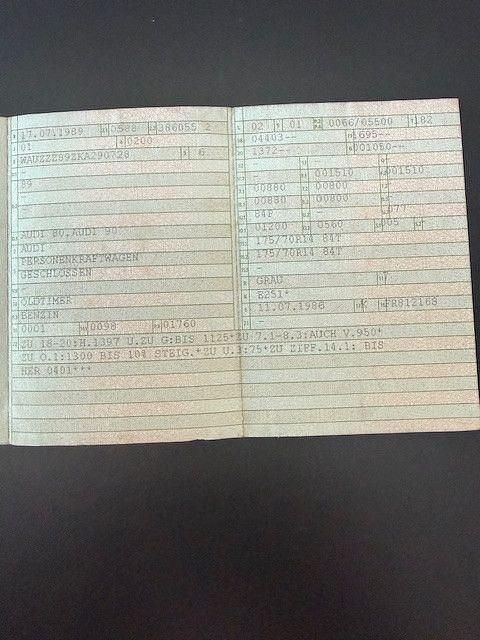 17.07.1989 0588 386055 2
01 0200
WAUZZZ89ZKA290728 6
-
89
-
-
-
AUDI 80,AUDI 90
AUDI
PERSONENKRAFTWAGEN
GESCHLOSSEN
-
OLDTIMER
BENZIN
0001 0098 01760
02 01 0066/05500 182
04403-- 1695--
1372-- 001050--
- -
- 001510 001510
00880 00800
00880 00800
84P - 077
01200 0560 005
175/70R14 84T
175/70R14 84T
-
GRAU
E251*
11.07.1986 K FR812168
-
ZU 18-20:H.1397 U.ZU G:BIS 1125*ZU 7.1-8.3:AUCH V.950*
ZU O.1:1300 BIS 10% STEIG.*ZU U.3:75*ZU ZIFF.14.1: BIS
HER 0401***